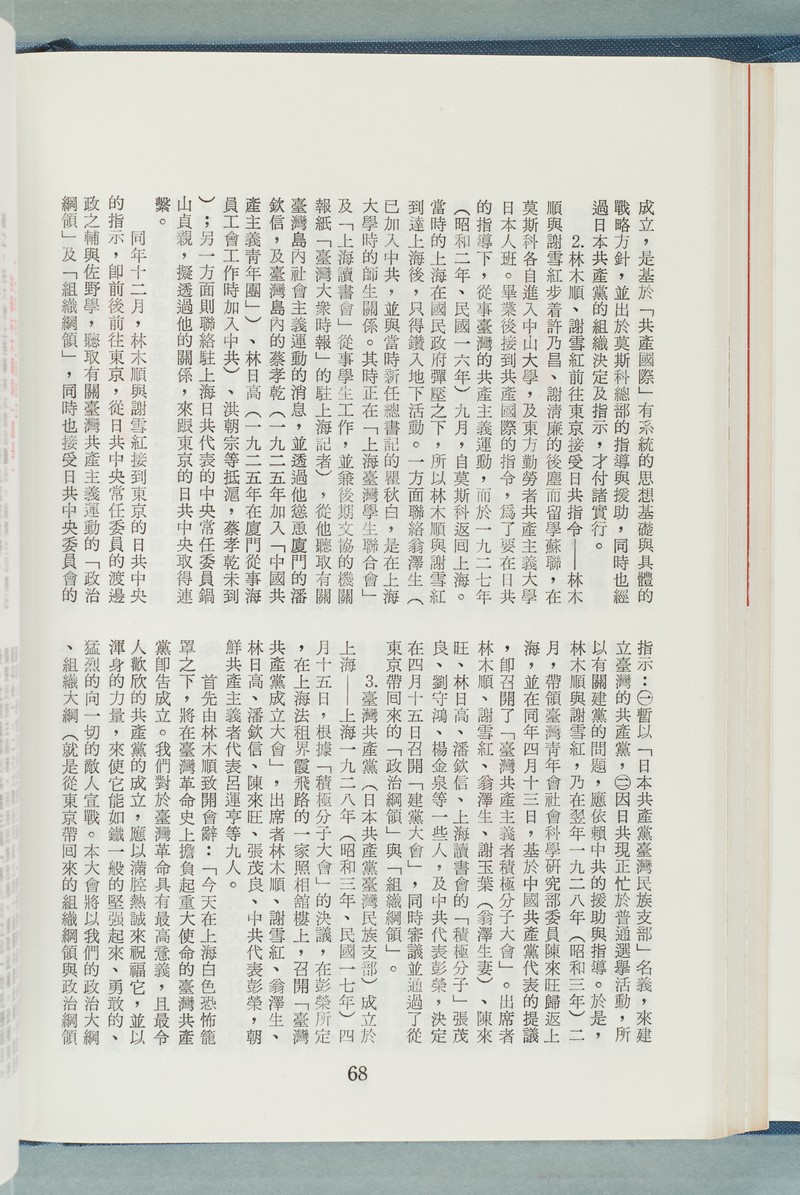 成立，是基於「共產國際」有系統的思想基礎與具體的
戰略方針，並出於莫斯科總部的指導與援助，同時也經
過日本共產黨的組織決定及指示，才付諸實行。
2.林木順、謝雪紅前往東京接受日共指令——林木
順與謝雪紅步着許乃昌、謝清廉的後塵而留學蘇聯，在
莫斯科各自進入中山大學，及東方勤勞者共產主義大學
日本人班。畢業後接到共產國際的指令，爲了要在日共
的指導下，從事臺灣的共產主義運動，而於一九二七年
（昭和二年、民國一六年）九月，自莫斯科返囘上海。
當時的上海在國民政府彈壓之下，所以林木順與謝雪紅
到達上海後，只得鑽入地下活動。一方面聯絡翁澤生（
已加入中共，並與當時新任總書記的瞿秋白，是在上海
大學時的師生關係。其時正在「上海臺灣學生聯合會」
及「上海讀書會」從事學生工作，並兼後期文協的機關
報紙「臺灣大衆時報」的駐上海記者），從他聽取有關
臺灣島內社會主義運動的消息，並透過他慫恿廈門的潘
欽信，及臺灣島內的蔡孝乾（一九二五年加入「中國共
產主義靑年團」）、林日高（一九二五年在廈門從事海
員工會工作時加入中共）、洪朝宗等抵滬，蔡孝乾未到
）；另一方面則聯絡駐上海日共代表的中央常任委員鍋
山貞親，擬透過他的關係，來跟東京的日共中央取得連
繫。
同年十二月，林木順與謝雪紅接到東京的日共中央
的指示，卽前後前往東京，從日共中央常任委員的渡邊
政之輔與佐野學，聽取有關臺灣共產主義運動的「政治
綱領」及「組織綱領」，同時也接受日共中央委員會的
指示：㊀暫以「日本共產黨臺灣民族支部」名義，來建
立臺灣的共產黨，㊁因日共現正忙於普通選擧活動，所
以有關建黨的問題，應依賴中共的援助與指導。於是，
林木順與謝雪紅，乃在翌年一九二八年（昭和三年）二
月，帶領臺灣青年會社會科學硏究部委員陳來旺歸返上
海，並在同年四月十三日，基於中國共產黨代表的提議
，卽召開了「臺灣共產主義者積極分子大會」。出席者
林木順、謝雪紅、翁澤生、謝玉葉（翁澤生妻）、陳來
旺、林日高、潘欽信、上海讀書會的「積極分子」張茂
良、劉守鴻、楊金泉等一些人，及中共代表彭榮，決定
在四月十五日召開「建黨大會」，同時審議並通過了從
東京帶囘來的「政治綱領」與「組織綱領」。
3.臺灣共產黨（日本共產黨臺灣民族支部）成立於
上海——上海一九二八年（昭和三年、民國一七年）四
月十五日，根據「積極分子大會」的決議，在彭榮所定
，在上海法租界霞飛路的一家照相舘樓上，召開「臺灣
共產黨成立大會」，出席者林木順、謝雪紅、翁澤生、
林日高、潘欽信、陳來旺、張茂良、中共代表彭榮，朝
鮮共產主義者代表呂運亨等九人。
首先由林木順致開會辭：「今天在上海白色恐怖籠
罩之下，將在臺灣革命史上擔負起重大使命的臺灣共產
黨卽告成立。我們對於臺灣革命具有最高意義，且最令
人歡欣的共產黨的成立，應以滿腔熱誠來祝福它，並以
渾身的力量，來使它能如鐵一般的堅强起來、勇敢的、
猛烈的向一切的敵人宣戰。本大會將以我們的政治大綱
、組織大綱（就是從東京帶囘來的組織綱領與政治綱領
68